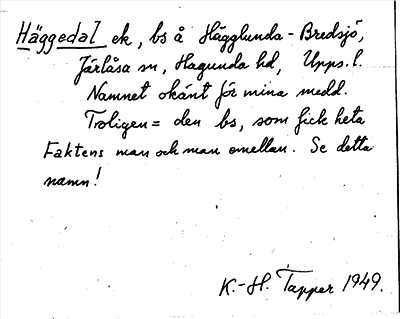 Häggedal ek, bs å Hägglunda-Bredsjö,
Järlåsa sn, Hagunda hd, Upps.l.
Namnet okänt för mina medd.
Troligen = den bs, som fick heta
Faktens man och man emellan. Se detta
namn!
K.-H. Tapper 1949.